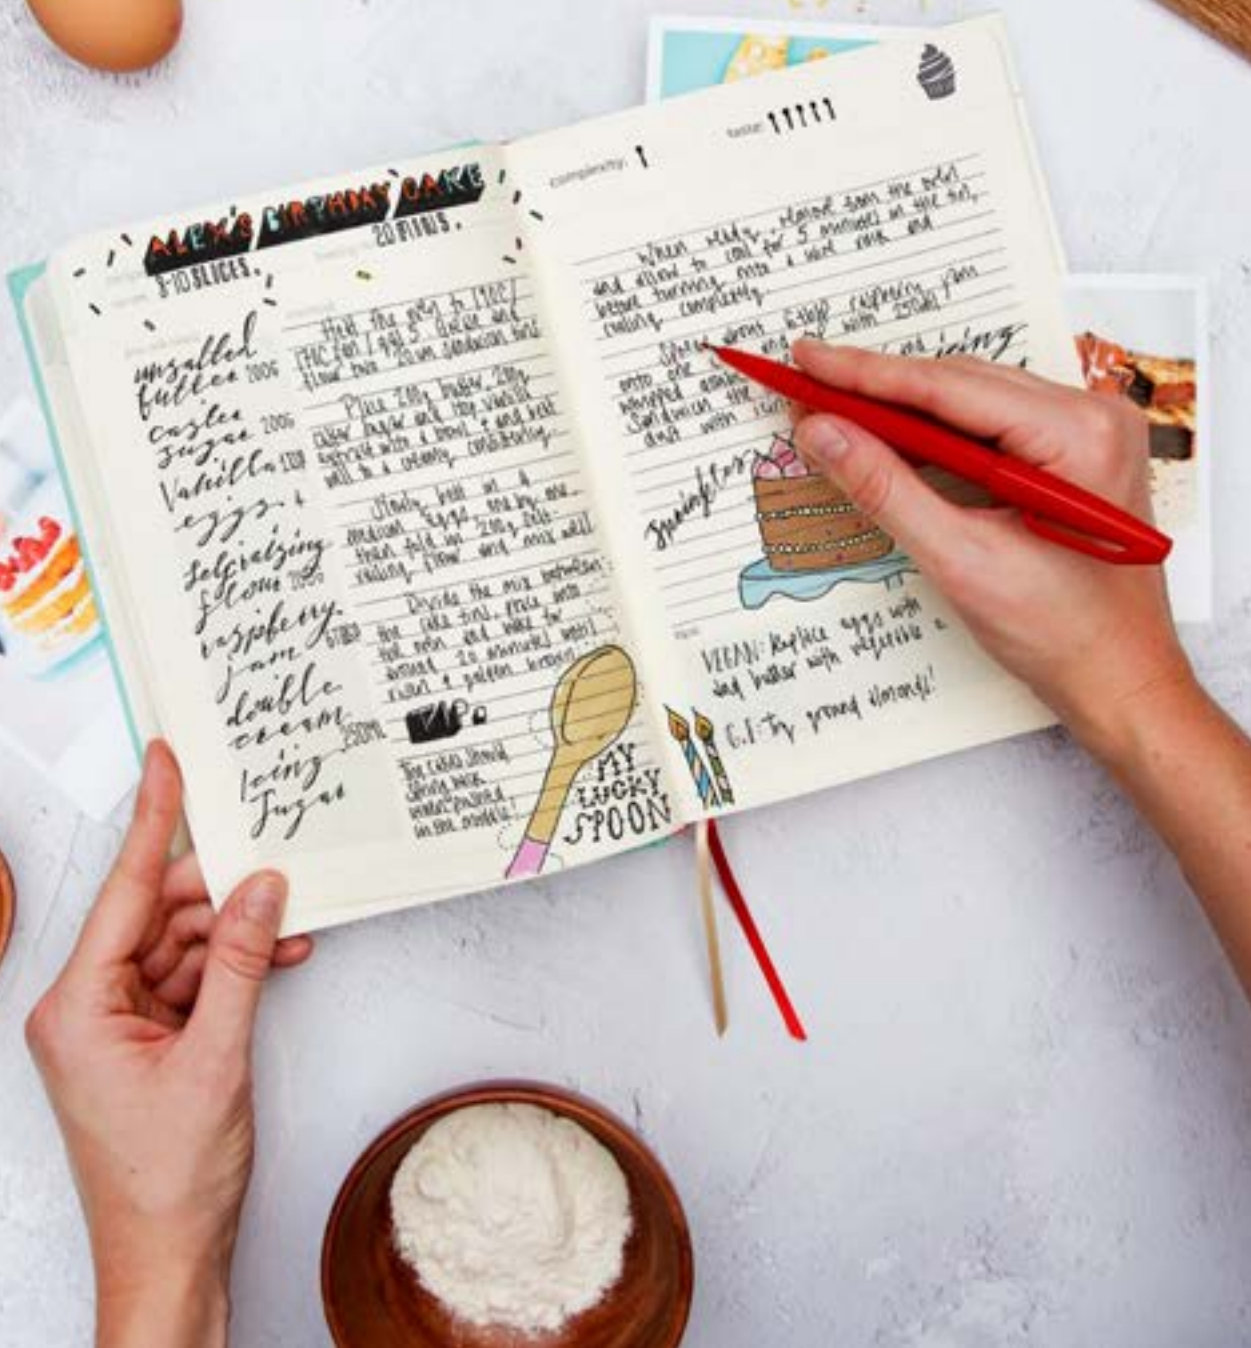 ALEX'S BIRTHDAY CAKE
8-10 SLICES.
20 MINS.
unsalted
butter 200G
caster
sugar 200G
Vanilla 1TSP
eggs. 4
selfraising
flour 200G
raspberry
jam 6TBSP
double
cream 250ML
Icing
Sugar
Heat the oven to 190C/
170C fan/ gas 5. Grease and
flour two 20cm sandwich tins.
Place 200g butter, 200g
caster sugar and 1tsp vanilla
extract into a bowl and beat
well to a creamy consistency.
Slowly beat in 4
medium eggs, one by one.
Then fold in 200g self-
raising flour and mix well.
Divide the mix between
the cake tins, place into
the oven and bake for
around 20 minutes until
risen & golden brown.
TIP:
The cakes should
spring back
when pushed
in the middle!
MY
LUCKY
SPOON
complexity:
taste:
When ready, remove from the oven
and allow to cool for 5 minutes in the tin,
before turning onto a wire rack and
cooling completely.
Spread about 6 tbsp raspberry jam
onto one and with 250ml
whipped double and
sandwich the
dust with icing
icing
sprinkles
VEGAN: Replace eggs with
and butter with vegetable
G.F: Try ground almonds!